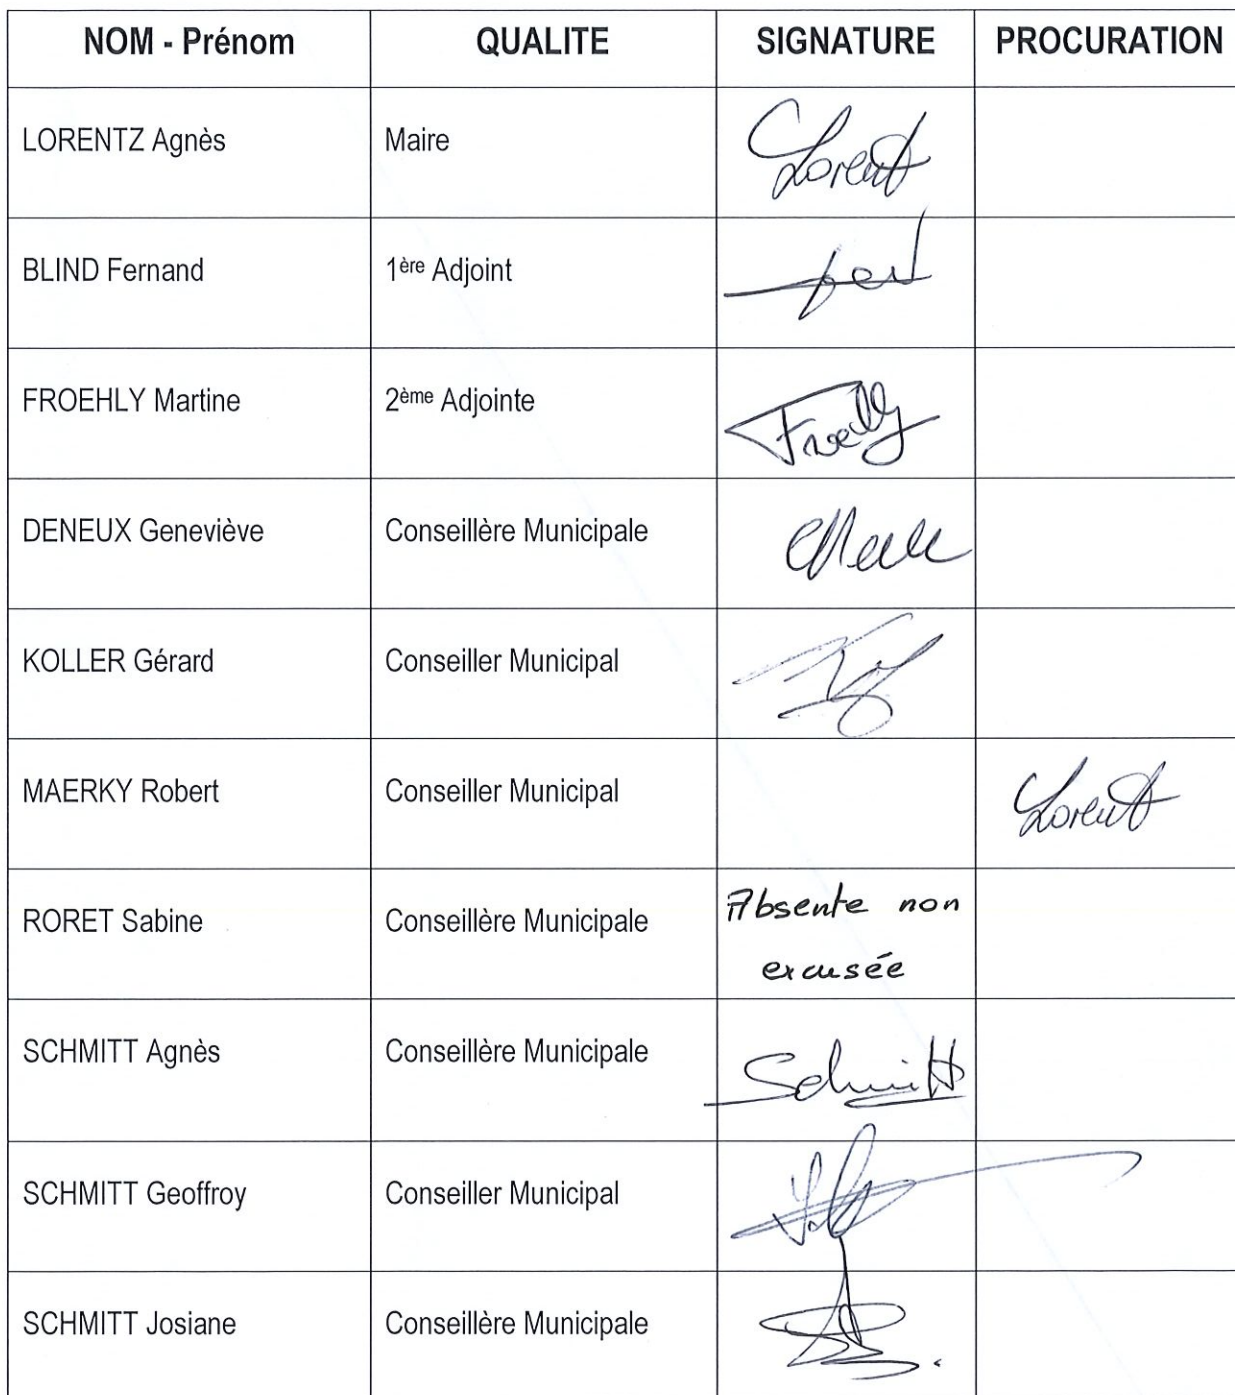 NOM - Prénom QUALITE SIGNATURE PROCURATION
LORENTZ Agnès Maire Lorentz
BLIND Fernand 1ère Adjoint
FROEHLY Martine 2ème Adjointe Froehly
DENEUX Geneviève Conseillère Municipale
KOLLER Gérard Conseiller Municipal
MAERKY Robert Conseiller Municipal Lorentz
RORET Sabine Conseillère Municipale Absente non
excusée
SCHMITT Agnès Conseillère Municipale Schmitt
SCHMITT Geoffroy Conseiller Municipal
SCHMITT Josiane Conseillère Municipale